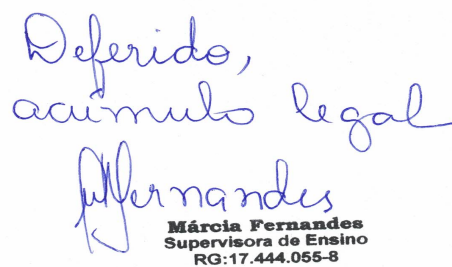 Deferido,
acúmulo legal
MFernandes
Márcia Fernandes
Supervisora de Ensino
RG:17.444.055-8